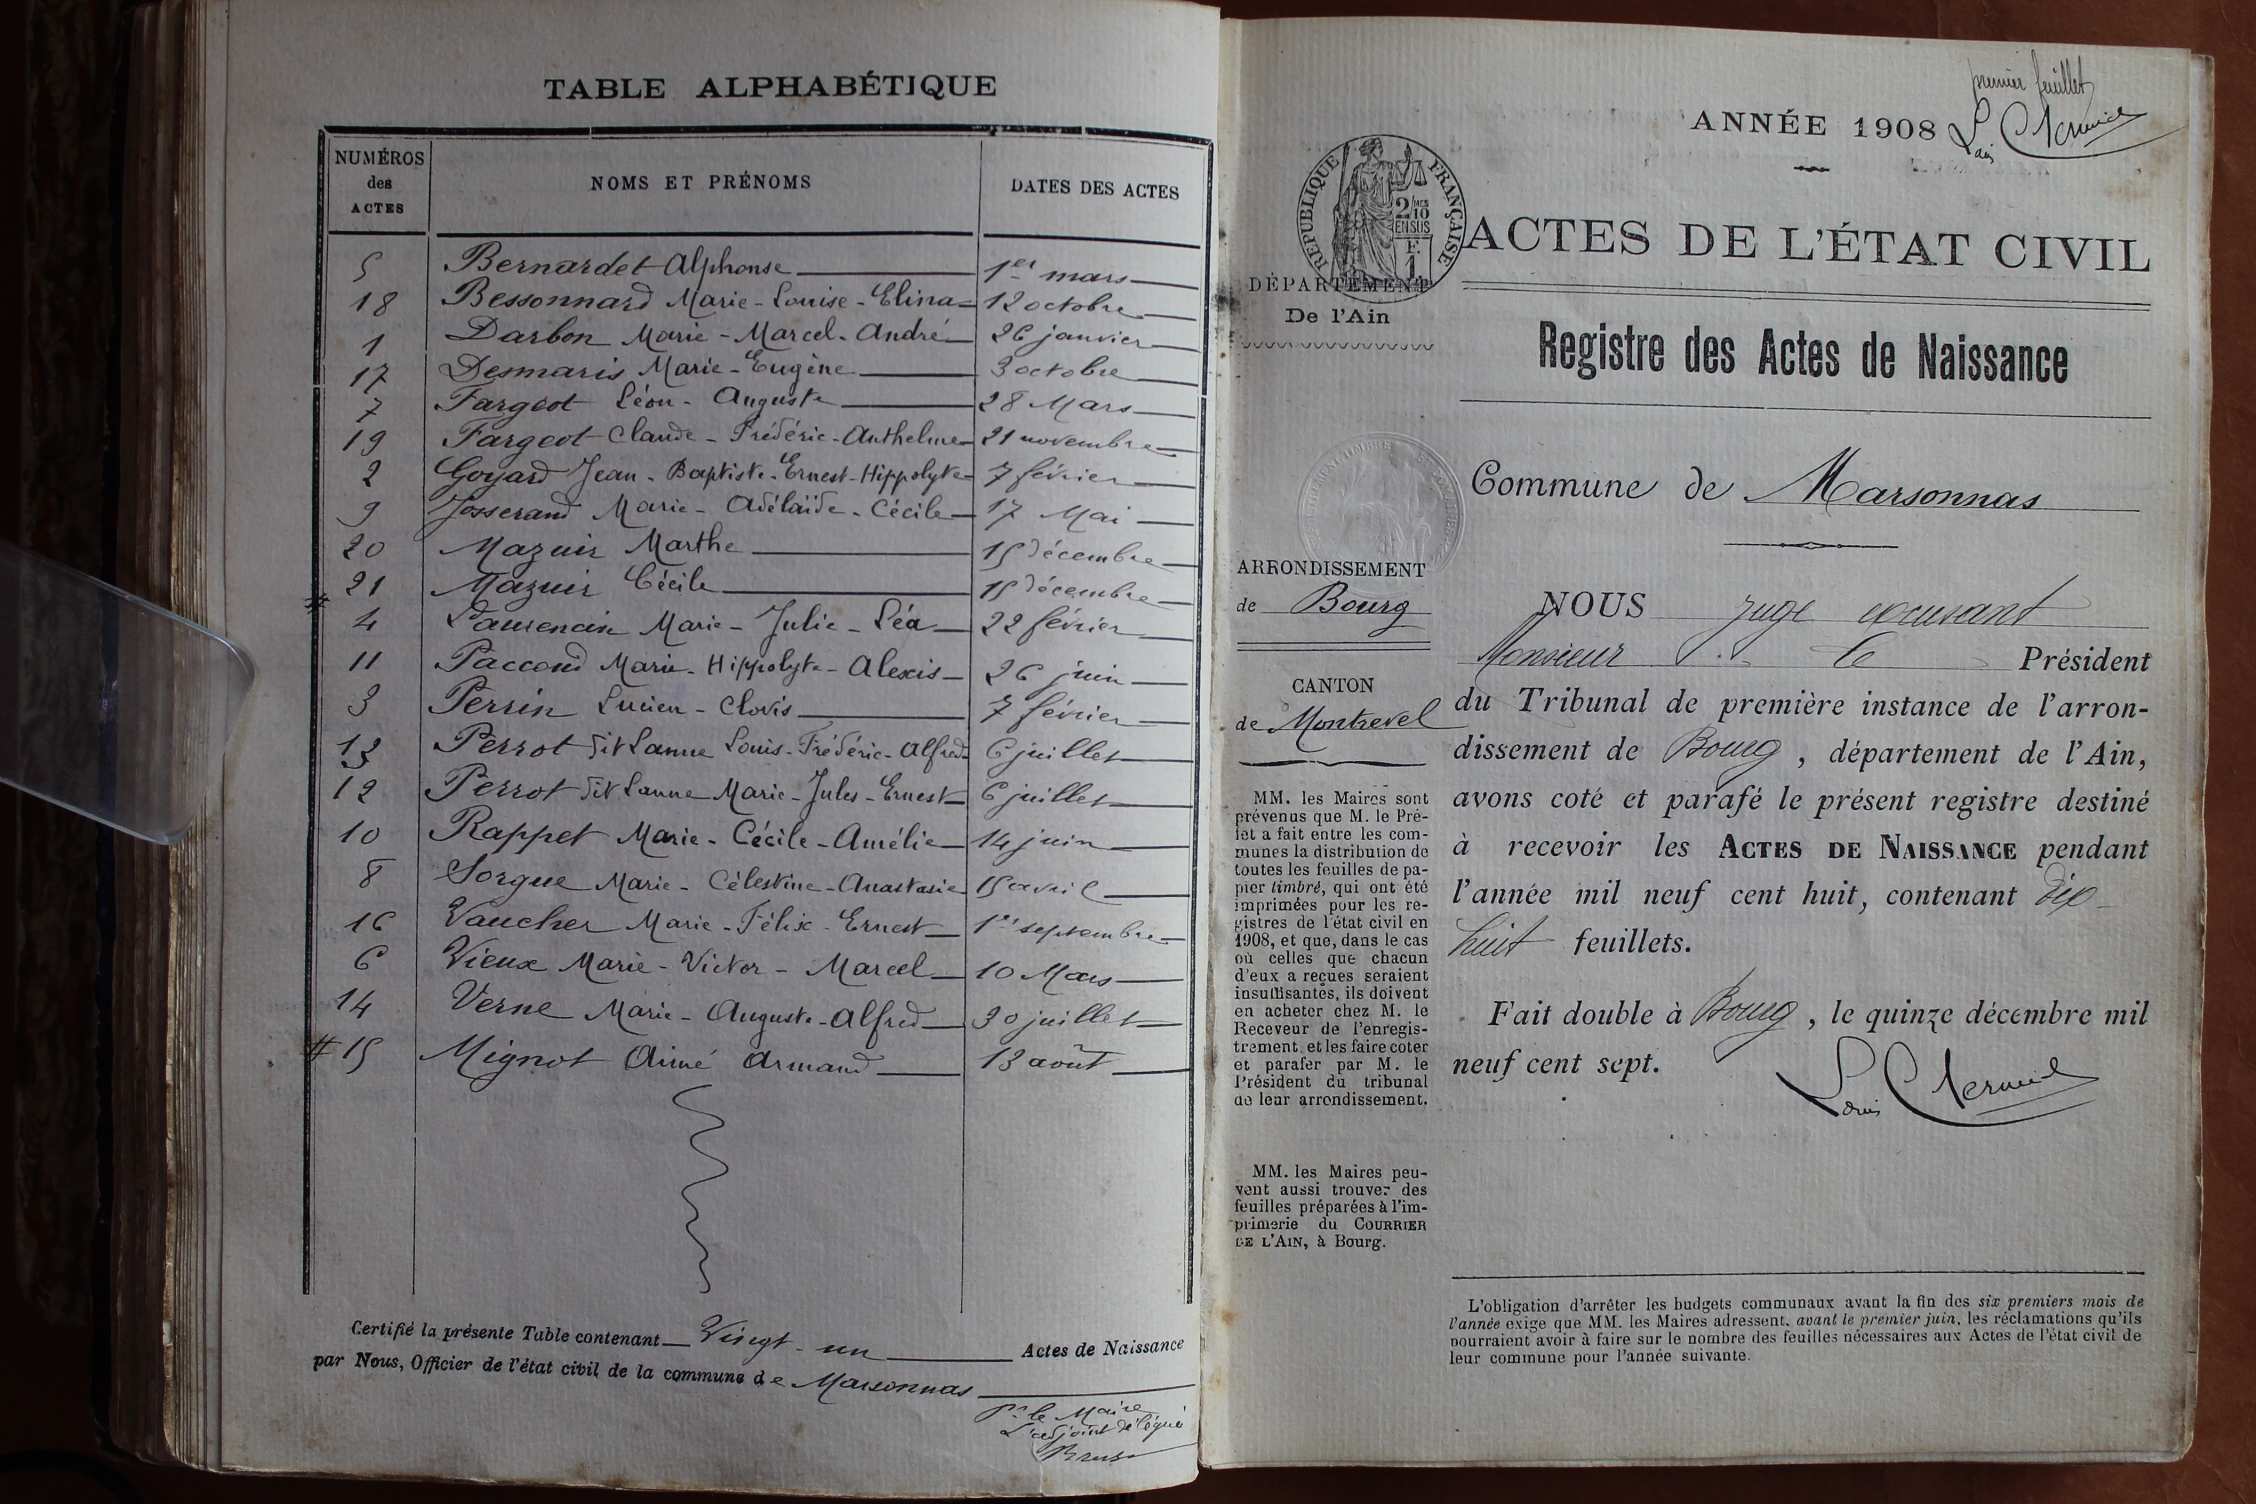 TABLE ALPHABÉTIQUE
NUMÉROS des ACTES NOMS ET PRÉNOMS DATES DES ACTES
5 Bernardet Alphonse 1er mars
18 Bessonnard Marie-Louise-Elina 12 octobre
1 Darbon Marie-Marcel-André 26 janvier
17 Desmaris Marie-Eugène 3 octobre
7 Fargeot Léon-Auguste 28 Mars
19 Fargeot Claude-Frédéric-Anthelme 21 novembre
2 Goyard Jean-Baptiste-Ernest-Hippolyte 7 février
9 Josserand Marie-Adélaïde-Cécile 17 Mai
20 Mazuir Marthe 15 décembre
21 Mazuir Cécile 15 décembre
# 4 Laurencin Marie-Julie-Léa 22 février
11 Paccoud Marie-Hippolyte-Alexis 26 juin
3 Perrin Lucien-Clovis 7 février
13 Perrot dit Lanne Louis-Frédéric-Alfred 6 juillet
12 Perrot dit Lanne Marie-Jules-Ernest 6 juillet
10 Rappet Marie-Cécile-Amélie 14 juin
8 Sorgue Marie-Célestine-Anastasie 15 avril
16 Vaucher Marie-Félix-Ernest 1er septembre
6 Vieux Marie-Victor-Marcel 10 Mars
14 Verne Marie-Auguste-Alfred 30 juillet
# 15 Mignot Aimé Armand 13 août
Certifié la présente Table contenant Vingt-un Actes de Naissance
par Nous, Officier de l'état civil de la commune de Marsonnas
Pr le Maire
L'adjoint délégué
premier feuillet
ANNÉE 1908
Louis
RÉPUBLIQUE FRANÇAISE
2/10 EN SUS
F. 1
ACTES DE L'ÉTAT CIVIL
DÉPARTEMENT
De l'Ain
Registre des Actes de Naissance
Commune de Marsonnas
ARRONDISSEMENT
de Bourg
CANTON
de Montrevel
MM. les Maires sont
prévenus que M. le Pré-
fet a fait entre les com-
munes la distribution de
toutes les feuilles de pa-
pier timbré, qui ont été
imprimées pour les re-
gistres de l'état civil en
1908, et que, dans le cas
où celles que chacun
d'eux a reçues seraient
insuffisantes, ils doivent
en acheter chez M. le
Receveur de l'enregis-
trement et les faire coter
et parafer par M. le
Président du tribunal
de leur arrondissement.
MM. les Maires peu-
vent aussi trouver des
feuilles préparées à l'im-
primerie du COURRIER
DE L'AIN, à Bourg.
NOUS juge excusant
Monsieur le Président
du Tribunal de première instance de l'arron-
dissement de Bourg, département de l'Ain,
avons coté et parafé le présent registre destiné
à recevoir les ACTES DE NAISSANCE pendant
l'année mil neuf cent huit, contenant dix-
huit feuillets.
Fait double à Bourg, le quinze décembre mil
neuf cent sept.
Louis
L'obligation d'arrêter les budgets communaux avant la fin des six premiers mois de
l'année exige que MM. les Maires adressent, avant le premier juin, les réclamations qu'ils
pourraient avoir à faire sur le nombre des feuilles nécessaires aux Actes de l'état civil de
leur commune pour l'année suivante.